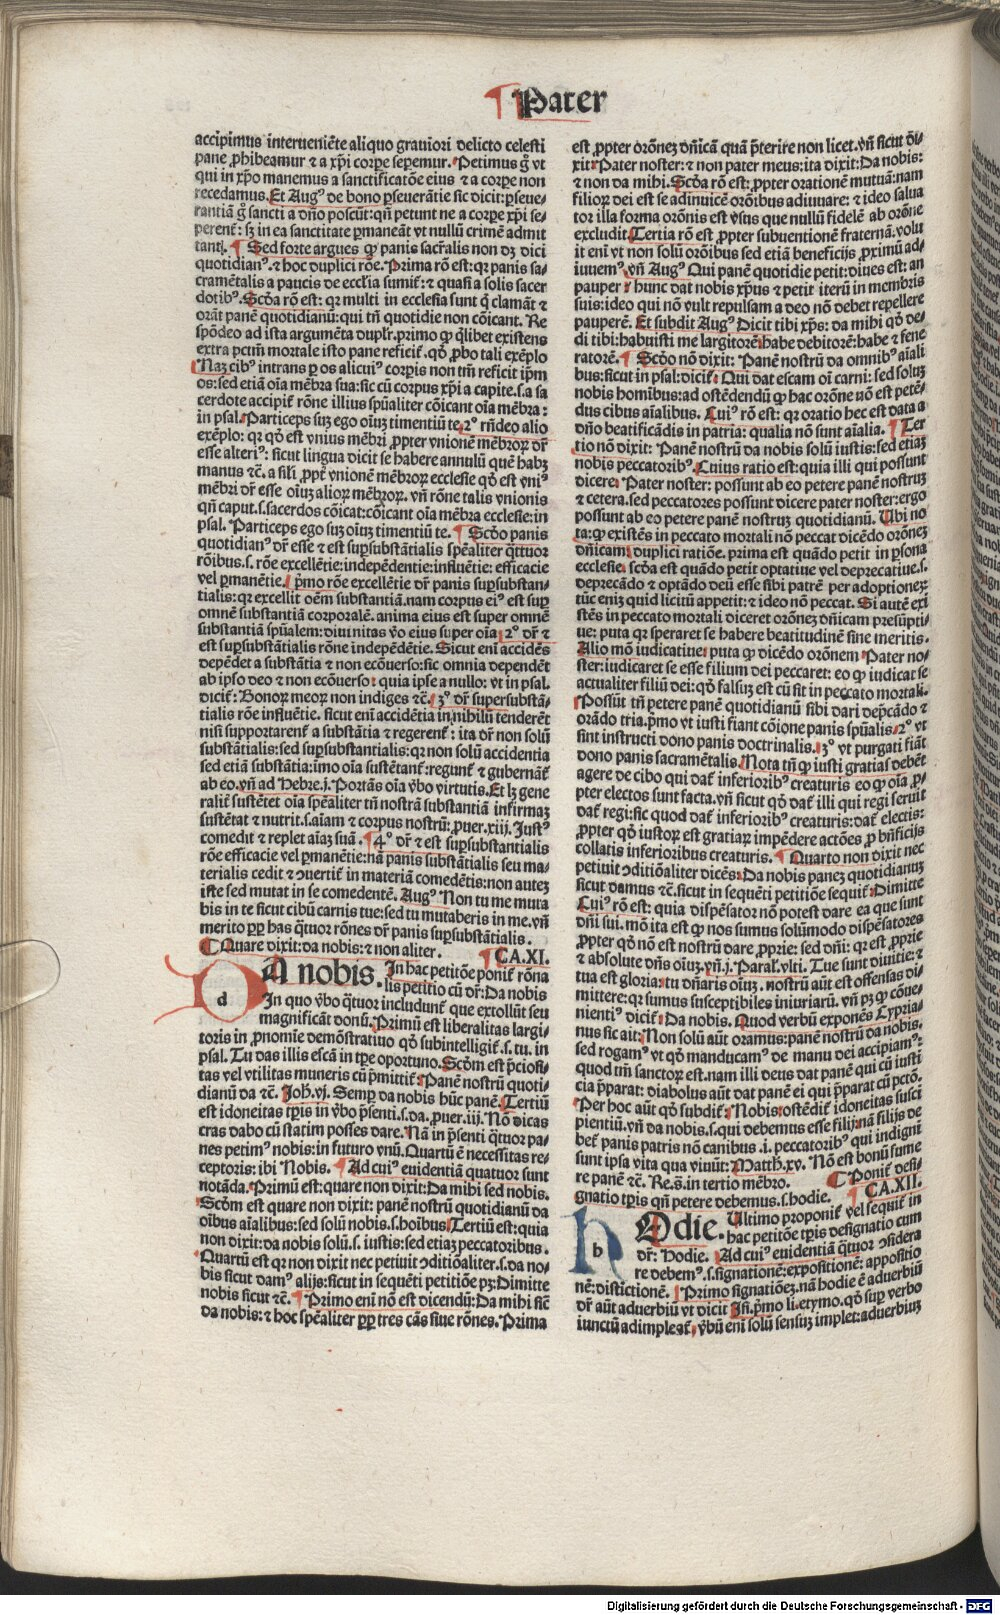 ¶ Pater
accipimus interueniēte aliquo grauiori delicto celesti
pane ꝓhibeamur ⁊ a xp̄i corpe sepemur. Petimus g̊ vt
qui in xp̄o manemus a sanctificatōe eius ⁊ a corpe non
recedamus. Et Augꝰ de bono ꝑseuerātie sic dicit: ꝑseue-
rantiā g̊ sancti a dn̄o poscūt: qn̄ petunt ne a corpe xp̄i se-
perent᷑: sꝫ in ea sanctitate ꝑmaneāt vt nullū crimē admit
tant. ¶ Sed forte argues ꝙ panis sacr̄alis non dꝫ dici
quotidianꝰ. ⁊ hoc duplici rōe. Prima rō est: qꝛ panis sa-
cramētalis a paucis de eccl̄ia sumit᷑: ⁊ quasi a solis sacer
dotibꝰ. Scd̄a rō est: qꝛ multi in ecclesia sunt q̇ clamāt ⁊
orāt panē quotidianū: qui tn̄ quotidie non cōicant. Re
spōdeo ad ista argumēta duplr̄. primo ꝙ q̄libet existens
extra pctm̄ mortale isto pane reficit᷑. qd̄ ꝓbo tali exēplo
Naꝫ cibꝰ intrans ꝑ os alicuiꝰ corpis non tm̄ reficit ip̄m
os: sed etiā oīa mēbra sua: sic cū corpus xp̄i a capite .s. a sa
cerdote accipit᷑ rōne illius spūaliter cōicant oīa mēbra:
in psal. Particeps suꝫ ego oīuꝫ timentiū te. 2º rn̄deo alio
exēplo: qꝛ qd̄ est vnius mēbri ꝓpter vnionē mēbroꝝ dr̄
esse alteriꝰ: sicut lingua dicit se habere annulū quē habꝫ
manus ⁊c̄. a sil̄i ꝓpt̄ vnionē mēbroꝝ ecclesie qd̄ est vniꝰ
mēbri dr̄ esse oīuꝫ alioꝝ mēbroꝝ. vn̄ rōne talis vnionis
qn̄ caput .s. sacerdos cōicat: cōicant oīa mēbra ecclesie: in
psal. Particeps ego suꝫ oīuꝫ timentiū te. ¶ Scd̄o panis
quotidianꝰ dr̄ esse ⁊ est suꝑsubstātialis spēaliter q̄ttuor
rōibus .s. rōe excellētie: independentie: influētie: efficacie
vel ꝑmanētie. p̄mo rōe excellētie dr̄ panis suꝑsubstan-
tialis: qꝛ excellit oēm substantiā. nam corpus eiꝰ est suꝑ
omnē substantiā corporalē. anima eius est super omnē
substantiā spūalem: diuinitas v̄o eius super oīa. 2º dr̄ ⁊
est suꝑsubstātialis rōne indepēdētie. Sicut eni accidēs
depēdet a substātia ⁊ non ecōuerso: sic omnia dependēt
ab ipso deo ⁊ non ecōuerso: quia ipse a nullo: vt in psal.
dicit᷑: Bonoꝝ meoꝝ non indiges ⁊c̄. 3º dr̄ supersubstā-
tialis rōe influētie. sicut eni accidētia in nihilū tenderēt
nisi supportarent᷑ a substātia ⁊ regerent᷑: ita dr̄ non solū
substātialis: sed suꝑsubstantialis: qꝛ non solū accidentia
sed etiā substātia: īmo oīa sustētant᷑: regunt᷑ ⁊ gubernāt᷑
ab eo. vn̄ ad Hebre. j. Portās oīa v̄bo virtutis. Et lꝫ gene
ralit᷑ sustētet oīa spēaliter tn̄ nostrā substantiā infirmaꝫ
sustētat ⁊ nutrit .s. aīam ⁊ corpus nostrū: ꝓuer. xiij. Justꝰ
comedit ⁊ replet aīaꝫ suā. ¶ 4º dr̄ ⁊ est suꝑsubstantialis
rōe efficacie vel ꝑmanētie: nā panis substātialis seu ma-
terialis cedit ⁊ ꝯuertit᷑ in materiā comedētis: non auteꝫ
iste sed mutat in se comedentē. Augꝰ Non tu me muta
bis in te sicut cibū carnis tue: sed tu mutaberis in me. vn̄
merito ꝓpꝑ has q̄tuor rōnes dr̄ panis suꝑsubstātialis.
¶ Quare dixit: da nobis: ⁊ non aliter. ¶ CA. XI.
d
DA nobis. In hac petitōe ponit᷑ rōna
lis petitio cū dr̄: Da nobis
In quo v̄bo q̄tuor includunt᷑ que extollūt seu
magnificāt donū. Primū est liberalitas largi-
toris in ꝓnomīe demōstratiuo qd̄ subintelligit᷑ .s. tu. in
psal. Tu das illis escā in tꝑe oportuno. Scd̄m est p̄ciosi-
tas vel vtilitas muneris cū p̄mittit᷑: Panē nostrū quoti-
dianū da ⁊c̄. Joh̄. vj. Semꝑ da nobis hūc panē. Tertiū
est idoneitas tꝑis in v̄bo p̄senti .s. da. ꝓuer. iij. Nō dicas
cras dabo cū statim posses dare. Nā in p̄senti q̄tuor pa-
nes petimꝰ nobis: in futuro vnū. Quartū ē necessitas re-
ceptoris: ibi Nobis. ¶ Ad cuiꝰ euidentiā quatuor sunt
notāda. Primū est: quare non dixit: Da mihi sed nobis.
Scd̄m est quare non dixit: panē nostrū quotidianū da
oībus aīalibus: sed solū nobis .s. hoībus. Tertiū est: quia
non dixit: da nobis solū .s. iustis: sed etiaꝫ peccatoribus.
Quartū est qꝛ non dixit nec petiuit ꝯditiōaliter .s. da no-
bis sicut damꝰ alijs: sicut in sequēti petitiōe pꝫ: Dimitte
nobis sicut ⁊c̄. ¶ Primo eni nō est dicendū: Da mihi sic̄
da nobis: ⁊ hoc spēaliter ꝓpꝑ tres cās siue rōnes. Prima
est ꝓpter orōneꝫ dn̄icā quā p̄terire non licet. vn̄ sicut di-
xit: Pater noster: ⁊ non pater meus: ita dixit: Da nobis:
⁊ non da mihi. Scd̄a rō est: ꝓpter orationē mutuā: nam
filioꝝ dei est se adinuicē orōibus adiuuare: ⁊ ideo salua
tor illa forma orōnis est vsus que nullū fidelē ab orōne
excludit. Tertia rō est ꝓpter subuentionē fraternā. volu
it eni vt non solū orōibus sed etiā beneficijs ꝓximū ad-
iuuemꝰ. vn̄ Augꝰ Qui panē quotidie petit: diues est: an
pauper: hunc dat nobis xp̄us ⁊ petit iterū in membris
suis: ideo qui nō vult repulsam a deo nō debet repellere
pauperē. Et subdit Augꝰ Dicit tibi xp̄s: da mihi qd̄ de-
di tibi: habuisti me largitorē: habe debitorē: habe ⁊ fene
ratorē. ¶ Scd̄o nō dixit: Panē nostrū da omnibꝰ aīali
bus: sicut in psal: dicit᷑: Qui dat escam oī carni: sed soluꝫ
nobis homībus: ad ostēdendū ꝙ hac orōne nō est petē-
dus cibus aīalibus. Cuiꝰ rō est: qꝛ oratio hec est data a
dn̄o beatificādis in patria: qualia nō sunt aīalia. ¶ Ter
tio nō dixit: Panē nostrū da nobis solū iustis: sed etiaꝫ
nobis peccatoribꝰ. Cuius ratio est: quia illi qui possunt
dicere: Pater noster: possunt ab eo petere panē nostruꝫ
⁊ cetera. sed peccatores possunt dicere pater noster: ergo
possunt ab eo petere panē nostruꝫ quotidianū. Ubi no
ta: ꝙ existēs in peccato mortali nō peccat dicēdo orōneꝫ
dn̄icam: duplici ratiōe. prima est quādo petit in ꝑsona
ecclesie. scd̄a est quādo petit optatiue vel deprecatiue .s.
deprecādo ⁊ optādo deū esse sibi patrē per adoptioneꝫ
tūc eniꝫ quid licitū appetit: ⁊ ideo nō peccat. Si autē exi
stēs in peccato mortali diceret orōneꝫ dn̄icam presūpti-
ue: puta qꝛ speraret se habere beatitudinē sine meritis.
Alio mō iudicatiue: puta ꝙ dicēdo orōnem Pater no-
ster: iudicaret se esse filium dei peccaret: eo ꝙ iudicat se
actualiter filiū dei: qd̄ falsuꝫ est cū sit in peccato mortali.
Possūt tn̄ petere panē quotidianū sibi dari dep̄cādo ⁊
orādo tria. p̄mo vt iusti fiant cōione panis spūalis. 2º vt
sint instructi dono panis doctrinalis. 3º vt purgati fiāt
dono panis sacramētalis. Nota tn̄ ꝙ iusti gratias debēt
agere de cibo qui dat᷑ inferioribꝰ creaturis eo ꝙ oīa ꝓ-
pter electos sunt facta. vn̄ sicut qd̄ dat᷑ illi qui regi seruit
dat᷑ regi: sic quod dat᷑ inferioribꝰ creaturis: dat᷑ electis:
ꝓpter qd̄ iustoꝝ est gratiaꝝ impēdere actōes ꝓ bn̄ficijs
collatis inferioribus creaturis. ¶ Quarto non dixit nec
petiuit ꝯditiōaliter dicēs: Da nobis paneꝫ quotidianuꝫ
sicut damus ⁊c̄. sicut in sequēti petitiōe sequit᷑: Dimitte
Cuiꝰ rō est: quia dispēsator nō potest dare ea que sunt
dn̄i sui. mō ita est ꝙ nos sumus solūmodo dispēsatores
ꝓpter qd̄ nō est nostrū dare ꝓprie: sed dn̄i: qꝛ est ꝓprie
⁊ absolute dn̄s oīuꝫ. vn̄. j. Paral. vlti. Tue sunt diuitie: ⁊
tua est gloria: tu dn̄aris oīuꝫ. nostrū aūt est offensas di-
mittere: qꝛ sumus susceptibiles iniuriarū. vn̄ pꝫ ꝙ cōue-
nientiꝰ dicit᷑: Da nobis. Quod verbū exponēs Cypria-
nus sic ait: Non solū aūt oramus: panē nostrū da nobis.
sed rogamꝰ vt qd̄ manducamꝰ de manu dei accipiamꝰ:
quod tm̄ sanctoꝝ est. nam illi deus dat panē qui cū iusti
cia p̄parat: diabolus aūt dat panē ei qui p̄parat cū pctō.
Per hoc aūt qd̄ subdit᷑: Nobis: ostēdit᷑ idoneitas suscī
pientiū. vn̄ da nobis .s. qui debemus esse filij: nā filijs de
bet᷑ panis patris nō canibus .i. peccatoribꝰ qui indigni
sunt ipsa vita qua viuūt: Matth̄. xv. Nō est bonū sume
re panē ⁊c̄. Re. s̄. in tertio mēbro. ¶ Ponit᷑ desi-
gnatio tꝑis qn̄ petere debemus .s. hodie. ¶ CA. XII.
h
HOdie. Ultimo proponit᷑ vel sequit᷑ in
hac petitōe tꝑis designatio cum
dr̄: Hodie. Ad cuiꝰ euidentiā q̄tuor ꝯsidera
re debemꝰ .s. signationē: expositionē: appositio
nē: distictionē. ¶ Primo signatiōeꝫ. nā hodie ē aduerbiū
dr̄ aūt aduerbiū vt dicit Isi. p̄mo li. etymo. qd̄ suꝑ verbo
iunctū adimpleat᷑. v̄bū eni solū sensuꝫ implet: aduerbiuꝫ
Digitalisierung gefördert durch die Deutsche Forschungsgemeinschaft - DFG